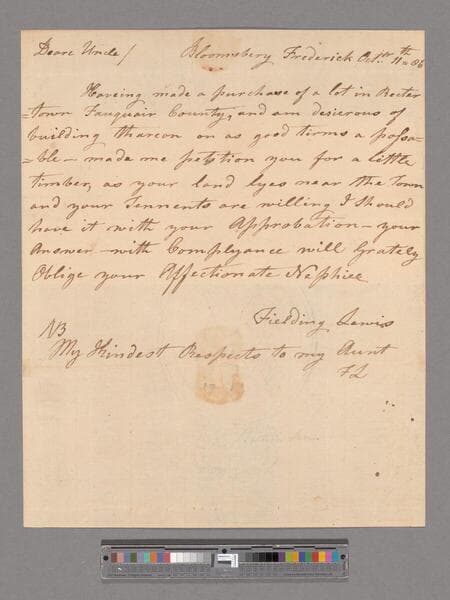 Deare Uncle / Bloomsbery Frederick Octbr. 11th = 86
Haveing made a purchase of a lot in Recter
=Town Fauquair County, and am desierous of
building thareon on as good tirms a possa=
=ble - made me petition you for a little
timber, as your land lyes near the Town
and your Tennents are willing I should
have it with your Approbation - your
Answer with Complyance will Grately
Oblige your Affectionate Nephiee
Fielding Lewis
NB
My Kindest Respects to my Aunt
FL